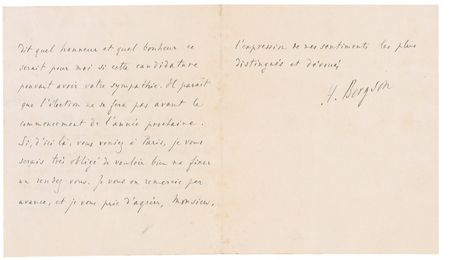 dit quel honneur et quel bonheur ce
serait pour moi si cette candidature
pouvait avoir votre sympathie. Il paraît
que l'élection ne se fera pas avant le
commencement de l'année prochaine.
Si, d'ici là, vous venez à Paris, je vous
serais très obligé de vouloir bien me fixer
un rendez-vous. Je vous en remercie par
avance, et je vous prie d'agréer, Monsieur,
l'expression de mes sentiments les plus
distingués et dévoués
H. Bergson